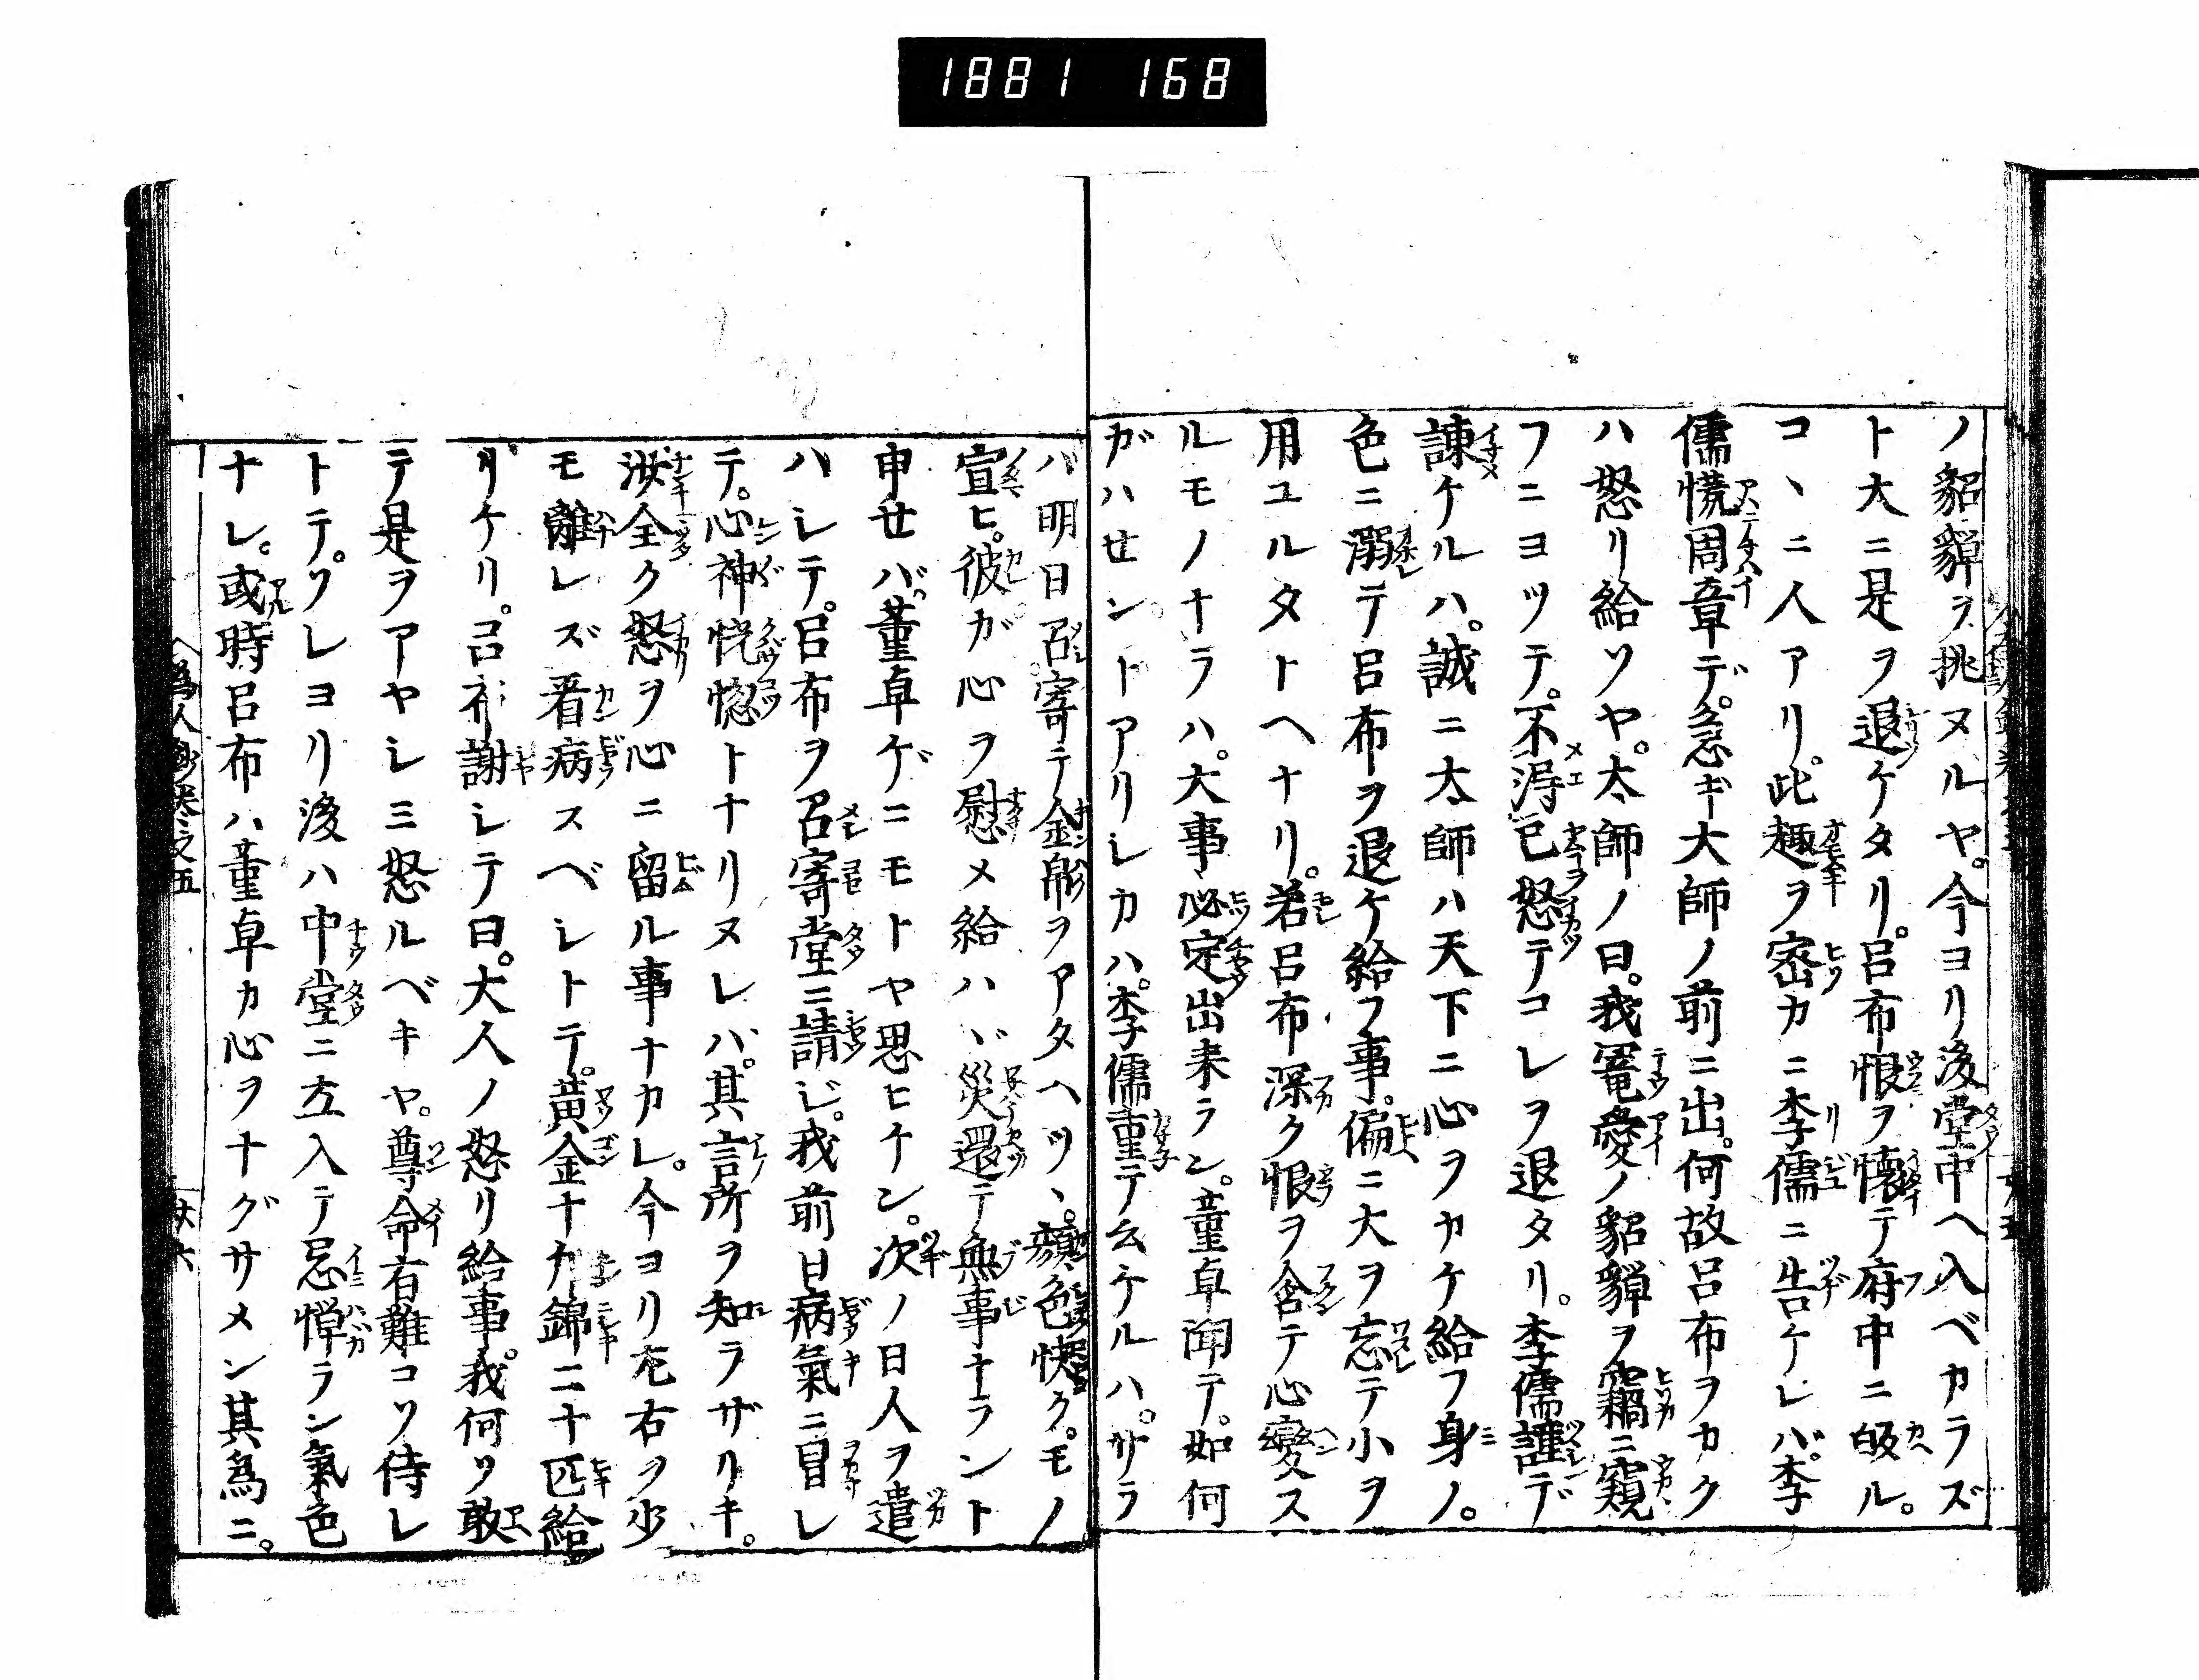 1881 168
ノ貂蟬ヲ挑ヌルヤ。今ヨリ後堂中ヘ入ベカラズ
ト大ニ是ヲ退ケタリ。呂布恨ヲ懐テ府中ニ皈ル。
コヽニ人アリ。此趣ヲ密カニ李儒ニ告ケレバ。李
儒慌周章デ。急ギ大師ノ前ニ出。何故呂布ヲカク
ハ怒リ給ソヤ。太師ノ曰。我寵愛ノ貂蟬ヲ竊ニ窺
フニヨツテ。不得已怒テコレヲ退タリ。李儒謹デ
諫ケルハ。誠ニ太師ハ天下ニ心ヲカケ給フ身ノ。
色ニ溺テ呂布ヲ退ケ給フ事。偏ニ大ヲ忘テ小ヲ
用ユルタトヘナリ。若呂布深ク恨ヲ含テ心変ス
ルモノナラハ。大事必定出来ラン。董卓聞テ。如何
ガハセントアリレカハ。李儒重テ云ケルハ。サラ
バ明日召寄テ金帛ヲアタヘツヽ。顔色快ク。モノ
宣ヒ。彼ガ心ヲ慰メ給ハヾ災還テ無事ナラント
申せバ。董卓ゲニモトヤ思ヒケン。次ノ日人ヲ遣
ハレテ。呂布ヲ召寄堂ニ請ジ。我前日病氣ニ冒レ
テ。心神恍惚トナリヌレバ。其言所ヲ知ラザリキ。
汝全ク怒ヲ心ニ留ル事ナカレ。今ヨリ左右ヲ少
モ離レズ看病スベレトテ。黄金十斤錦二十匹給
リケリ。呂布謝レテ曰。大人ノ怒リ給事。我何ソ敢
テ是ヲアヤレミ怒ルベキヤ。尊命有難コソ侍レ
トテ。ソレヨリ後ハ中堂ニ立入テ忌憚ラン氣色
ナレ。或時呂布ハ董卓カ心ヲナグサメン其為ニ。
為人鈔巻之五 廿六